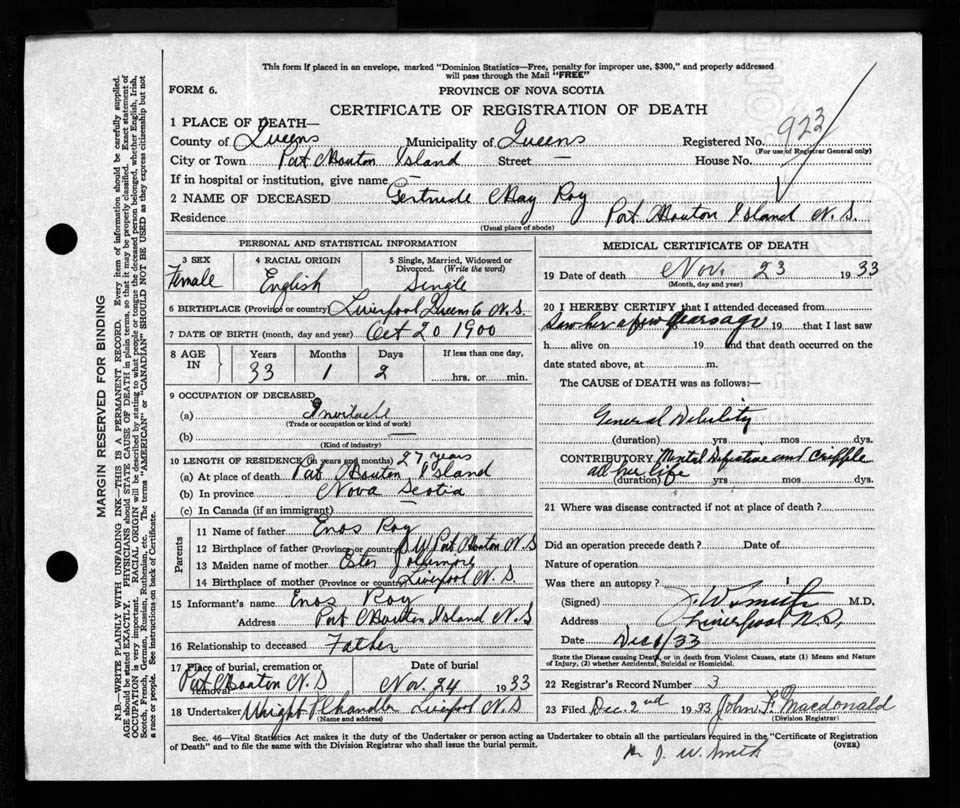 This form if placed in an envelope, marked "Dominion Statistics—Free, penalty for improper use, $300," and properly addressed
will pass through the Mail "FREE"
FORM 6.
PROVINCE OF NOVA SCOTIA
CERTIFICATE OF REGISTRATION OF DEATH
1 PLACE OF DEATH—
County of Queens Municipality of Queens Registered No. 923
(For use of Registrar General only)
City or Town Port Mouton Island Street — House No.
If in hospital or institution, give name —
2 NAME OF DECEASED Gertrude May Roy
Residence Port Mouton Island N.S.
(Usual place of abode)
PERSONAL AND STATISTICAL INFORMATION
3 SEX
Female
4 RACIAL ORIGIN
English
5 Single, Married, Widowed or
Divorced. (Write the word)
Single
6 BIRTHPLACE (Province or country) Liverpool Queens Co N.S.
7 DATE OF BIRTH (month, day and year) Oct 20 1900
8 AGE IN
Years Months Days If less than one day,
33 1 2 hrs. or min.
9 OCCUPATION OF DECEASED
(a)
(Trade or occupation or kind of work)
(b) —
(Kind of industry)
10 LENGTH OF RESIDENCE (in years and months) 27 years
(a) At place of death Port Mouton Island
(b) In province Nova Scotia
(c) In Canada (if an immigrant)
Parents
11 Name of father Enos Roy
12 Birthplace of father (Province or country) S W Port Mouton N.S
13 Maiden name of mother
14 Birthplace of mother (Province or country) Liverpool N.S.
15 Informant's name Enos Roy
Address Port Mouton Island N S
16 Relationship to deceased Father
17 Place of burial, cremation or
removal Port Mouton N.S
Date of burial
Nov. 24 1933
18 Undertaker Wright Chandler Liverpool N.S
(Name and address)
MEDICAL CERTIFICATE OF DEATH
19 Date of death Nov. 23 1933
(Month, day and year)
20 I HEREBY CERTIFY that I attended deceased from
Saw her a few years ago 19 that I last saw
h alive on 19 and that death occurred on the
date stated above, at m.
The CAUSE OF DEATH was as follows:—
General Debility
(duration) yrs mos dys.
CONTRIBUTORY Mental Defective and Cripple
all her life
(duration) yrs mos dys.
21 Where was disease contracted if not at place of death?
Did an operation precede death? Date of
Nature of operation
Was there an autopsy?
(Signed) J. W. Smith M.D.
Address Liverpool N.S.
Date Dec 1/33
State the Disease causing Death, or in death from Violent Causes, state (1) Means and Nature
of Injury, (2) whether Accidental, Suicidal or Homicidal.
22 Registrar's Record Number 3
23 Filed Dec. 2nd 1933 John F. Macdonald
(Division Registrar)
Sec. 46—Vital Statistics Act makes it the duty of the Undertaker or person acting as Undertaker to obtain all the particulars required in the "Certificate of Registration
of Death" and to file the same with the Division Registrar who shall issue the burial permit.
(OVER)
J. W. Smith
MARGIN RESERVED FOR BINDING
N.B.—WRITE PLAINLY WITH UNFADING INK—THIS IS A PERMANENT RECORD. Every item of information should be carefully supplied.
AGE should be stated EXACTLY. PHYSICIANS should STATE CAUSE OF DEATH in plain terms, so that it may be properly classified. Exact statement of
OCCUPATION is very important. RACIAL ORIGIN will be described by stating to what people or tongue the deceased person belonged, whether English, Irish,
Scotch, French, German, Russian, Ruthenian, etc. The terms "AMERICAN" or "CANADIAN" SHOULD NOT BE USED as they express citizenship but not
a race or people. See instructions on back of Certificate.